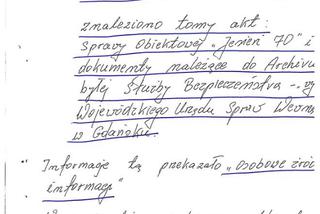 znaleziono tomy akt:
Sprawy Obiektowej „Jesień 70” i
dokumenty należące do Archiwu
byłej Służby Bezpieczeństwa -
Wojewódzkiego Urzędu Spraw Wewnę
w Gdańsku.
" Informację tą przekazało „osobowe źród
informacji"